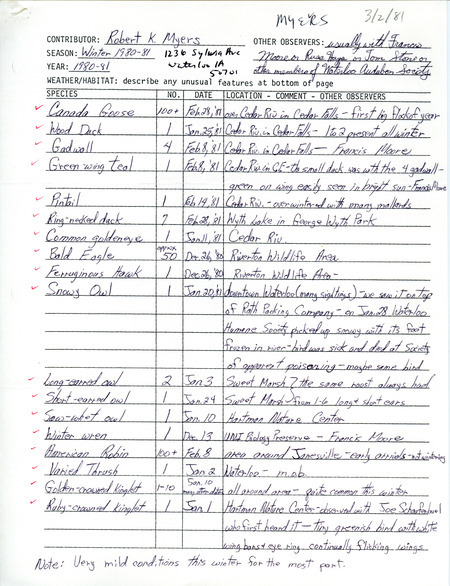 MYERS
3/2/81
CONTRIBUTOR: Robert K Myers
SEASON: Winter 1980-81 1236 Sylvia Ave
YEAR: 1980-81 Waterloo IA 50701
OTHER OBSERVERS: usually with Francis
Moore or Russ Hays or Tom Stone or
other members of Waterloo Audubon Society
WEATHER/HABITAT: describe any unusual features at bottom of page
SPECIES NO. DATE LOCATION - COMMENT - OTHER OBSERVERS
Canada Goose 100+ Feb 28, '81 over Cedar Riv. in Cedar Falls - first big flock of year
Wood Duck 1 Jan 25, '81 Cedar Riv. in Cedar Falls - 1 to 2 present all winter
Gadwall 4 Feb 8, '81 Cedar Riv. in Cedar Falls - Francis Moore
Green-wing teal 1 Feb 8, '81 Cedar Riv in CF - the small duck was with the 4 gadwall -
green on wing easily seen in bright sun - Francis Moore
Pintail 1 Feb 14, '81 Cedar Riv. - overwintered with many mallards
Ring-necked duck 7 Feb 28, '81 Wyth Lake in George Wyth Park
Common goldeneye 1 Jan 11, '81 Cedar Riv.
Bald Eagle approx 50 Dec 26, '80 Riverton Wildlife Area
Ferruginous Hawk 1 Dec 26, '80 Riverton Wildlife Area -
Snowy Owl 1 Jan 20, '81 downtown Waterloo (many sightings) - we saw it on top
of Rath Packing Company - on Jan 28 Waterloo
Humane Society picked up snowy with its foot
frozen in river - bird was sick and died at Society
of apparent poisoning - maybe same bird
Long-eared owl 2 Jan 3 Sweet Marsh ? the same roost always had
Short-eared owl 1 Jan 24 Sweet Marsh from 1-6 long & short ears
Saw-whet owl 1 Jan. 10 Hartman Nature Center
Winter wren 1 Dec. 13 UNI Biology Preserve - Francis Moore
American Robin 100+ Feb. 8 area around Janesville - early arrivals - not wintering
Varied Thrush 1 Jan 2 Waterloo - m.ob.
Golden-crowned kinglet 1-10 Jan. 10 all around area - quite common this winter
Ruby-crowned kinglet 1 Jan 1 Hartman Nature Center - observed with Joe
who first heard it - tiny greenish bird with white
wing bars & eye ring continually flicking wings.
Note: Very mild conditions this winter for the most part.